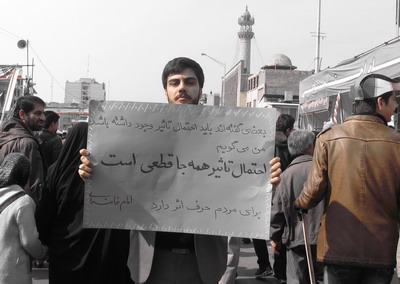 بعضی گفته‌اند باید احتمال تاثیر وجود داشته باشد
من می‌گویم
احتمال تاثیر همه جا قطعی است
برای مردم حرف اثر دارد
امام خامنه‌ای